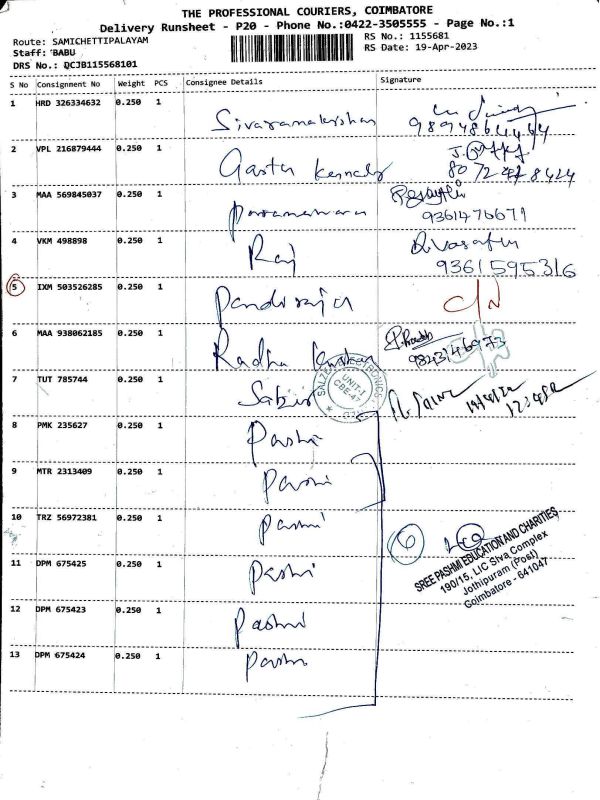 THE PROFESSIONAL COURIERS, COIMBATORE
Delivery Runsheet - P20 - Phone No.:0422-3505555 - Page No.:1
Route: SAMICHETTIPALAYAM
RS No.: 1155681
Staff: BABU
RS Date: 19-Apr-2023
DRS No.: QCJB115568101
S No Consignment No Weight PCS Consignee Details Signature
1 HRD 326334632 0.250 1 Sivaramakrishan
9894864464
2 VPL 216879444 0.250 1
3 MAA 569845037 0.250 1
9361476671
4 VKM 498898 0.250 1 Raj
9361595316
5 IXM 503526285 0.250 1 Pandiraja
6 MAA 938062185 0.250 1 Radha
9843146973
7 TUT 785744 0.250 1 Sabir
UNIT-I
CBE-47
8 PMK 235627 0.250 1 Pashi
9 MTR 2313409 0.250 1 Pashi
10 TRZ 56972381 0.250 1 Pashmi
6
11 DPM 675425 0.250 1 Pashi
12 DPM 675423 0.250 1 Pashmi
13 DPM 675424 0.250 1 Pashi
SREE PASHMI EDUCATION AND CHARITIES
190/15, LIC Siva Complex
Jothipuram (Post)
Coimbatore - 641047